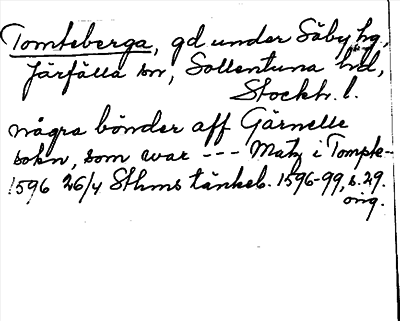 Tomteberga, gd under Säby hg,
Järfälla sn, Sollentuna hd,
Stockh. l.
några bönder aff Gärnelle
sokn, som war --- Matz i Tompte-
1596 26/4 Sthms tänkeb. 1596-99, s. 29.
orig.